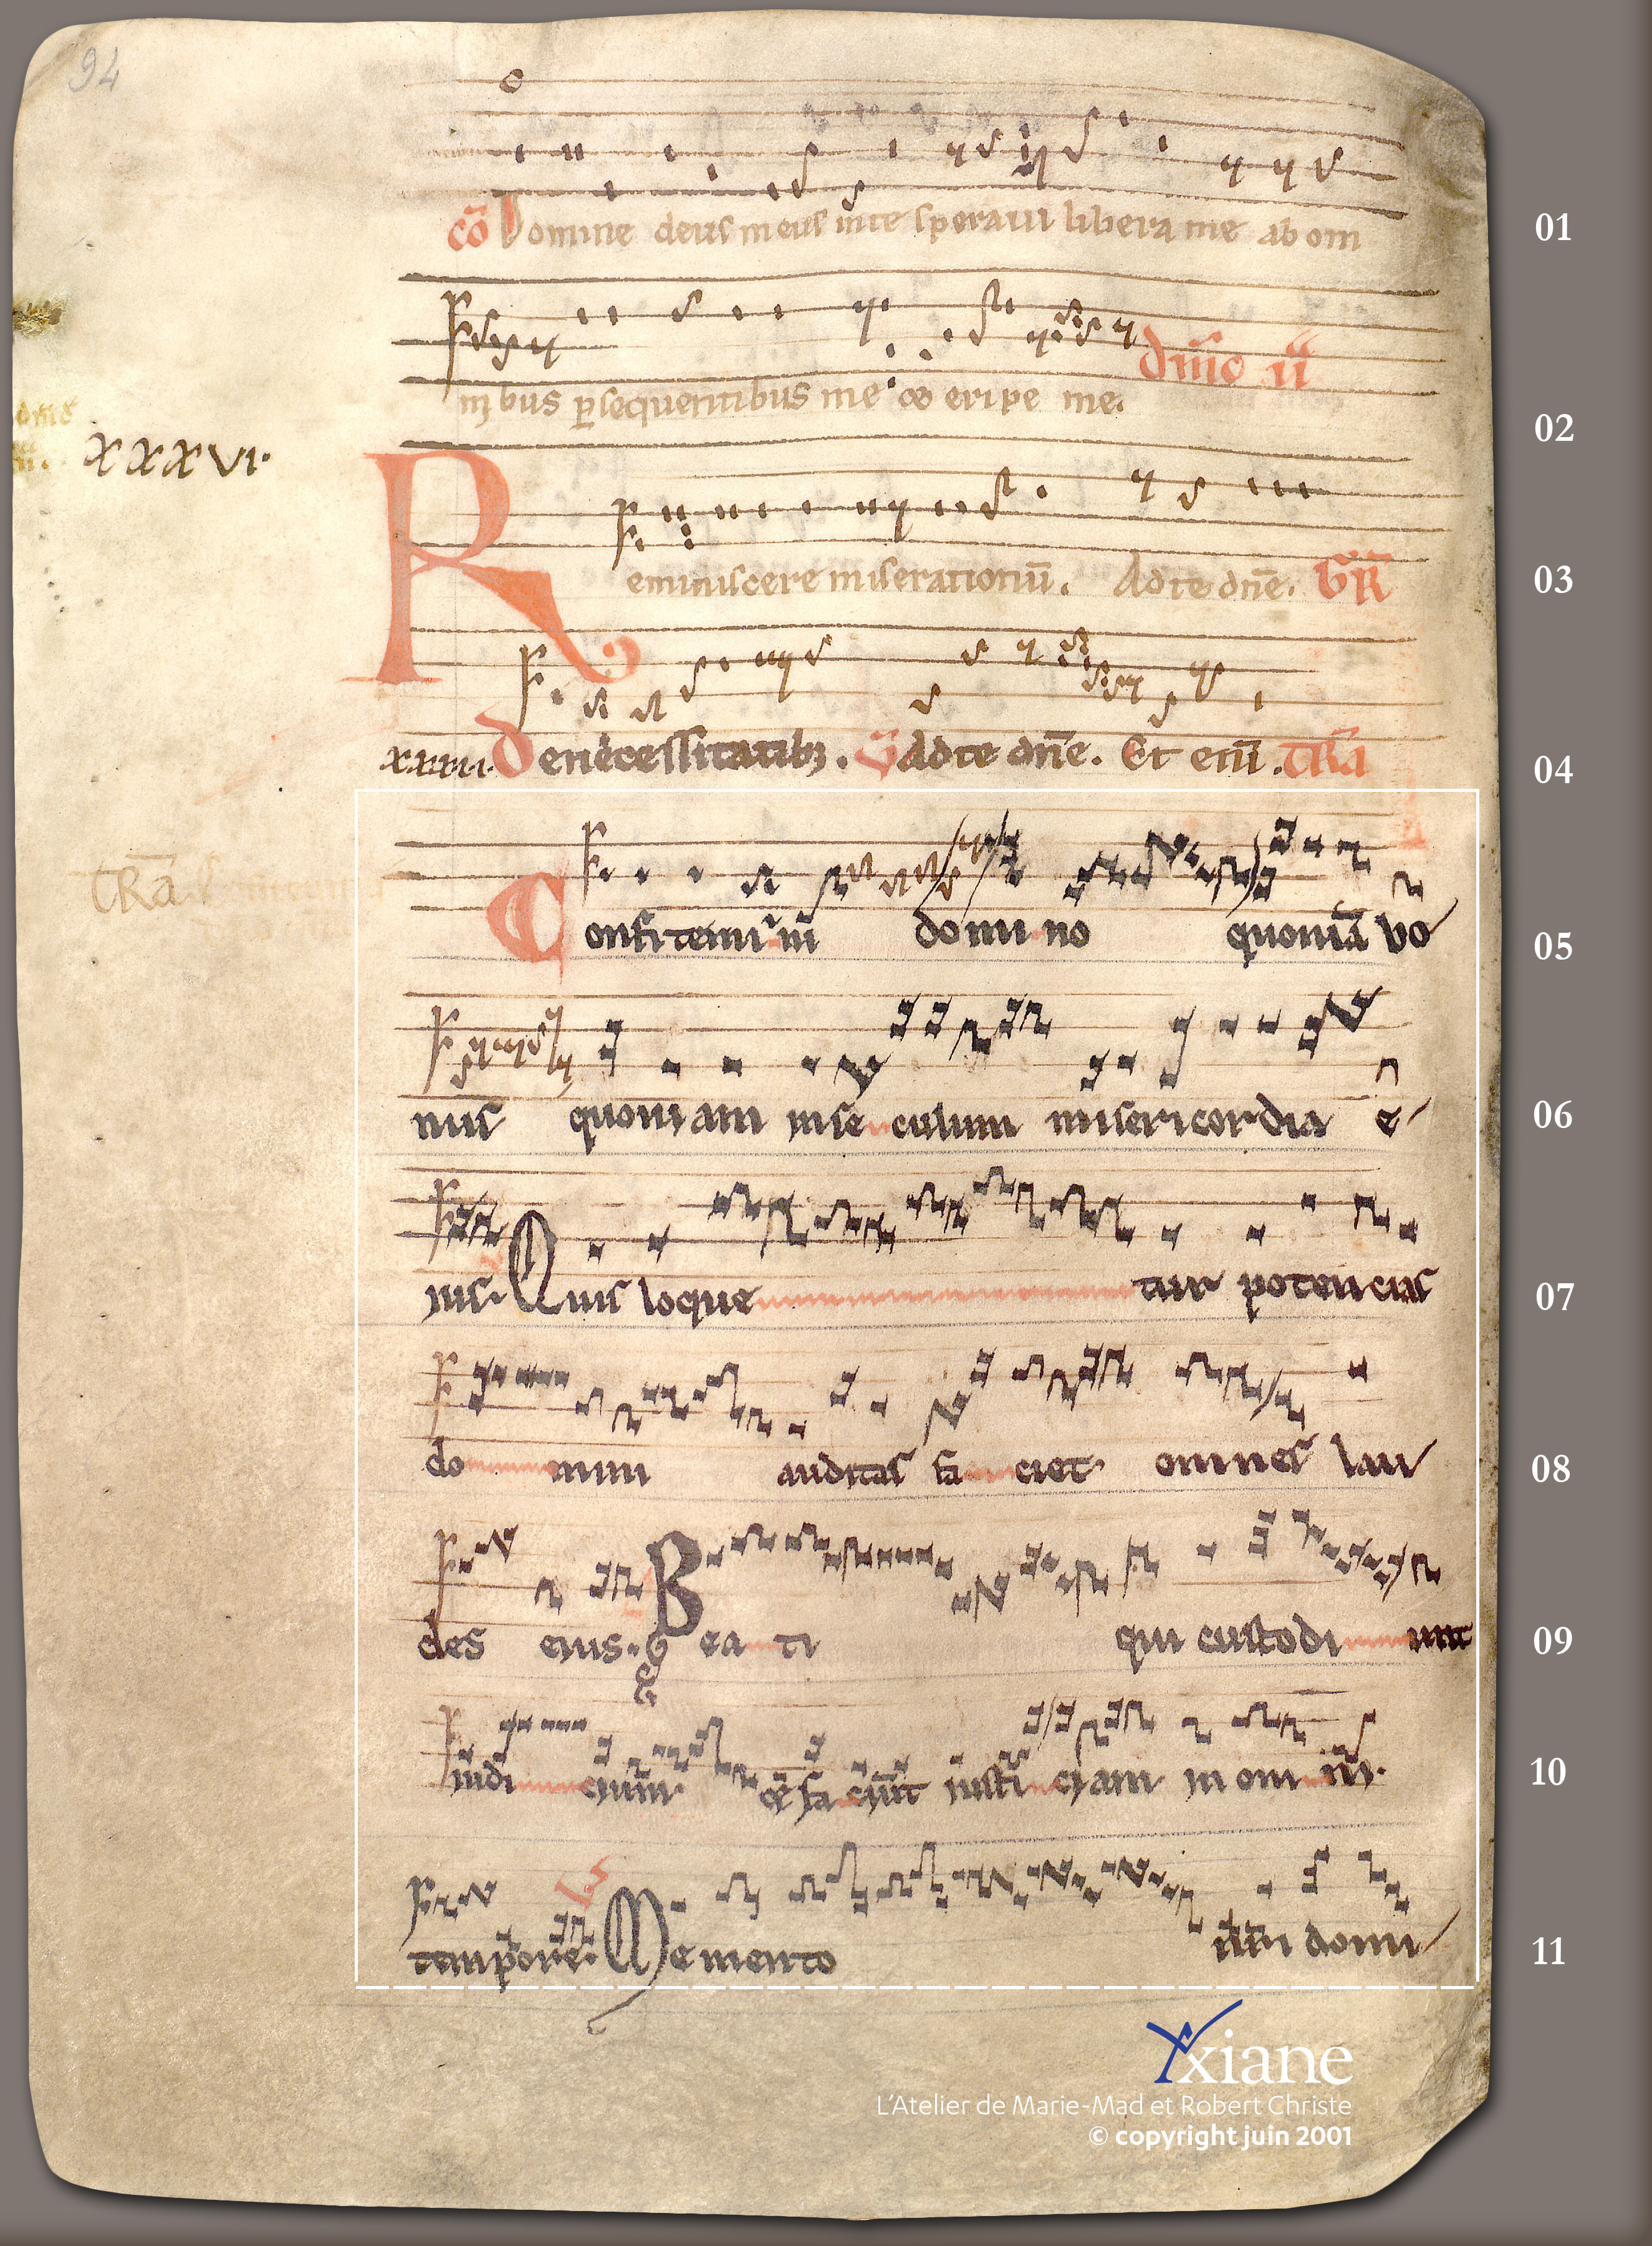 94
cō Domine deus meus inte speraui libera me ab om
01
nibus p̲sequentibus me ⁊ eripe me. dn̄ic ii
02
xxxvi.
Reminiscere miserationū. Ad te dn̄e. GR̄
03
xxxvii. De necessitatibꝫ. Ad te dn̄e. Et enī. TRā
04
TRā
Confitemini domino quoniā bo
05
nus quoniam inseculum misericordia e
06
ius. Quis loquetur potencias
07
domini auditas faciet omnes lau
08
des eius. Beati qui custodiunt
09
iudicium et faciunt iusticiam in omni
10
tempore. Memento nr̄i domi
11
Yxiane
L'Atelier de Marie-Mad et Robert Christe
© copyright juin 2001